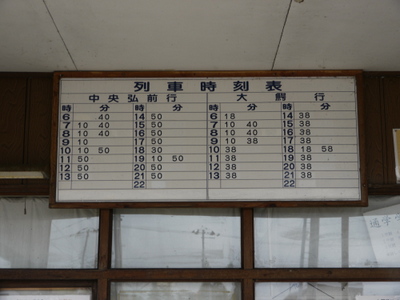 列車時刻表
中央弘前行 大鰐行
時 分 時 分 時 分 時 分
6 40 14 50 6 18 14 38
7 10 40 15 50 7 10 40 15 38
8 10 40 16 50 8 10 40 16 38
9 10 17 50 9 10 38 17 38
10 10 50 18 30 10 38 18 18 58
11 50 19 10 50 11 38 19 38
12 50 20 50 12 38 20 38
13 50 21 50 13 38 21 38
22 22